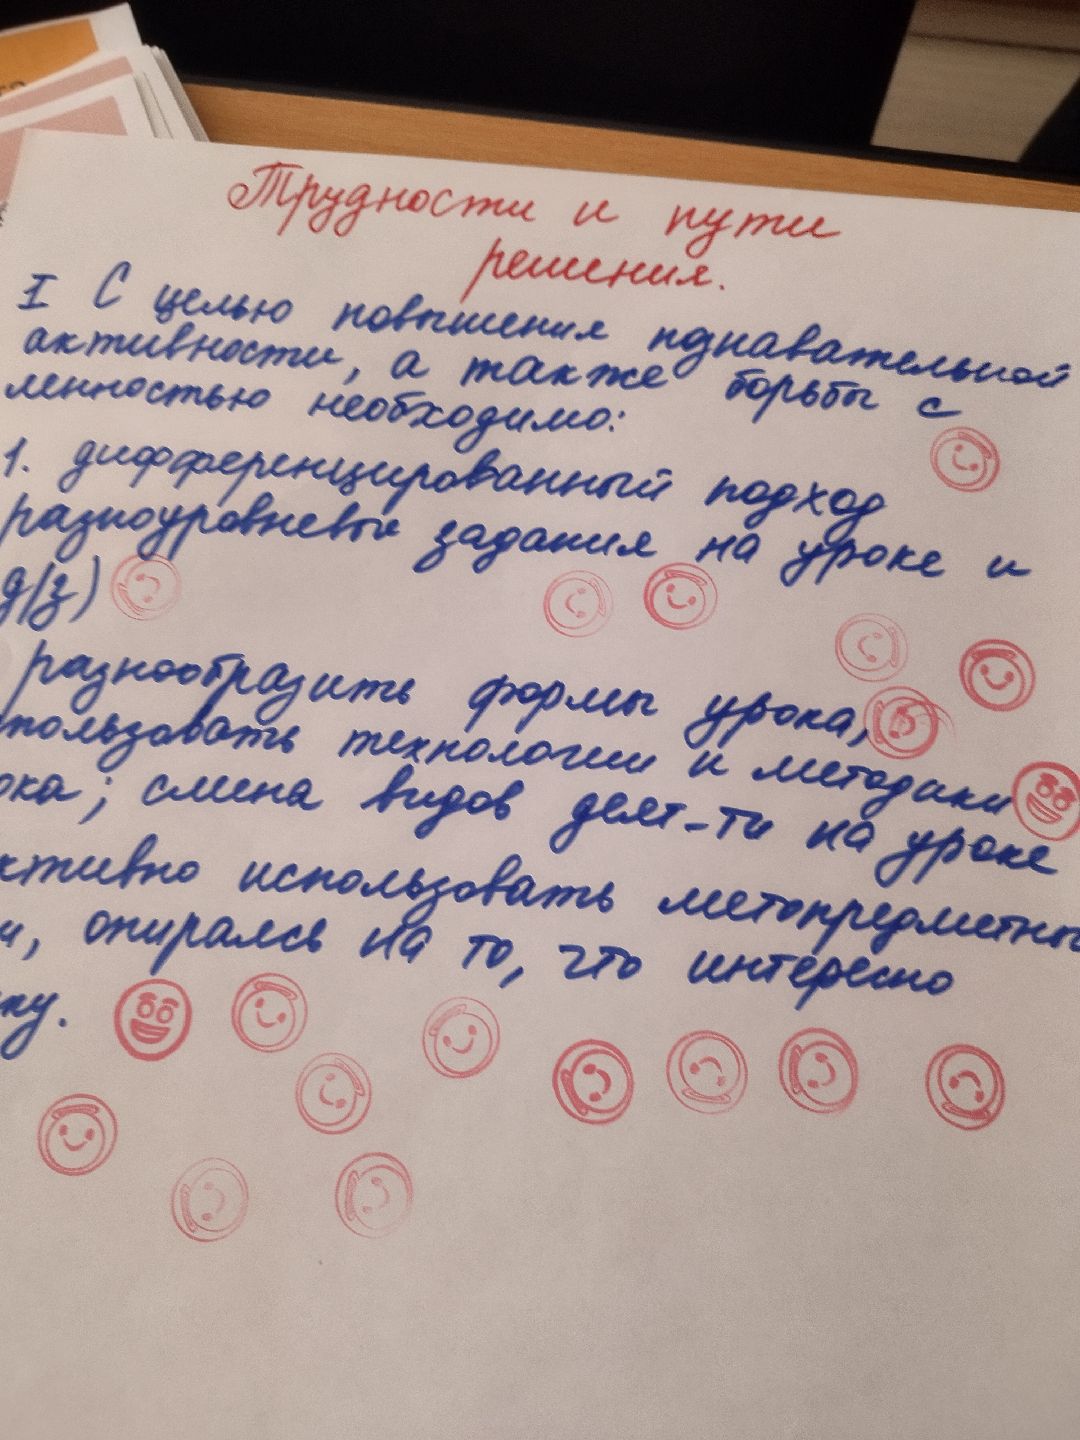 Трудности и пути
решения.
I С целью повышения познавательной
активности, а также борьбы с
ленностью необходимо:
1. дифференцированный подход
разноуровневые задания на уроке и
д/з)
разнообразить формы урока,
пользовать технологии и методики
ока; смена видов деят-ти на уроке
ктивно использовать метопредметны
и, опираясь на то, что интересно
ку.